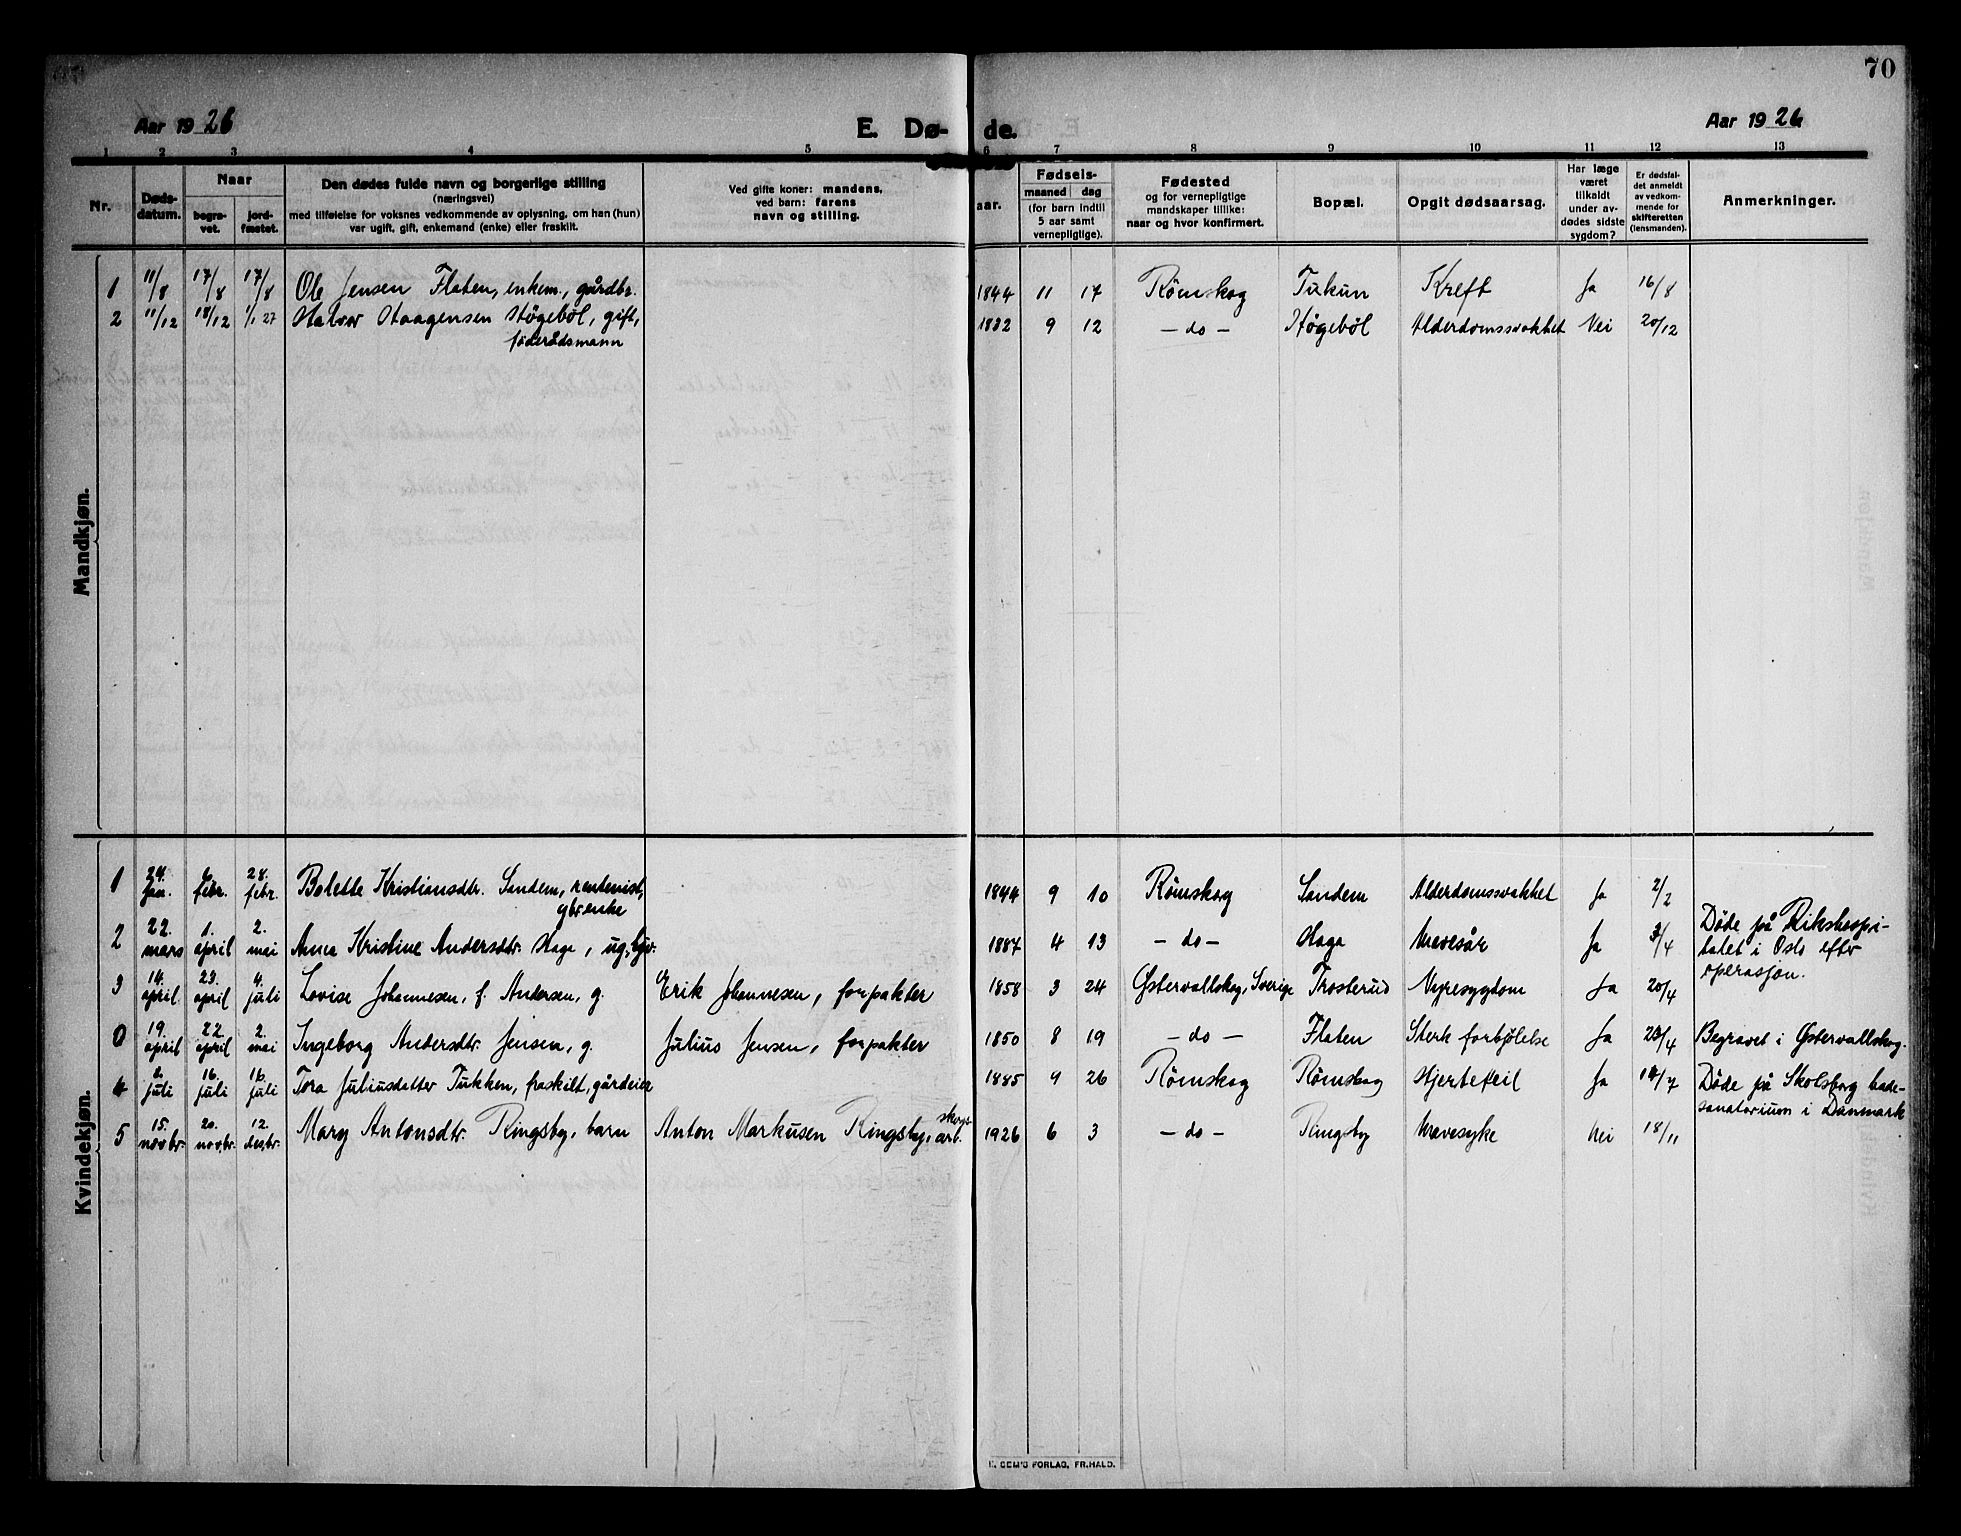 70
Aar 1926
E. Dø- de.
Aar 1926
1 2 3 4 5 6 7 8 9 10 11 12 13
Nr.
Døds-
datum.
Naar
begra-
vet.
jord-
fæstet.
Den dødes fulde navn og borgerlige stilling
(næringsvei)
med tilføielse for voksnes vedkommende av oplysning, om han (hun)
var ugift, gift, enkemand (enke) eller fraskilt.
Ved gifte koner: mandens,
ved barn: farens
navn og stilling.
aar.
Fødsels-
maaned dag
(for barn indtil
5 aar samt
vernepligtige).
Fødested
og for vernepligtige
mandskaper tillike:
naar og hvor konfirmert.
Bopæl.
Opgit dødsaarsag.
Har læge
været
tilkaldt
under av-
dødes sidste
sygdom?
Er dødsfal-
det anmeldt
av vedkom-
mende for
skifteretten
(lensmanden).
Anmerkninger.
Mandkjøn.
1 11/8 17/8 17/8 Ole Jensen Flaten, enkem., gårdbr. 1844 11 17 Rømskog Tukun Kreft Ja 16/8
2 11/12 18/12 1/1 27 Halvor Haagensen Høgeböl, gift, 1832 9 12 – do – Høgeböl Alderdomssvakhet Nei 20/12
föderådsmann
Kvindekjøn.
1 24. jan. 6. febr. 28. febr. Bolette Kristiansdtr. Sandem, rentenist, 1844 9 10 Rømskog Sandem Alderdomssvakhet Ja 2/2
gbr.enke
2 22. mars 1. april 2. mai Anna Kristine Andersdtr. Haga, ug., 1887 4 13 – do – Haga Mavesår Ja 3/4 Døde på Rikshospi-
talet i Oslo efter
operasjon.
3 14. april 23. april 4. juli Lovise Johannesen, f. Andersen, g. Erik Johannesen, forpakter 1858 3 24 Østervallskog, Sverige Trosterud Nyresygdom Ja 20/4
0 19. april 22. april 2. mai Ingeborg Andersdtr. Jensen, g. Julius Jensen, forpakter 1850 8 19 – do – Flaten Sterk forkjølelse Ja Begravet i Østervallskog.
4 2. juli 16. juli 16. juli Tora Juliusdatter Tukken, fraskilt, gårdeier 1885 9 26 Rømskog Rømskog Hjertefeil Ja 14/7 Døde på Skolsborg bade-
sanatorium i Danmark
5 15. novbr. 20. novbr. 12. desbr. Mary Antonsdtr. Ringsby, barn Anton Markusen Ringsby, skogs-
arb. 1926 6 3 – do – Ringsby Mavesyke Nei 18/11
E. SEM'S FORLAG, FR.HALD.